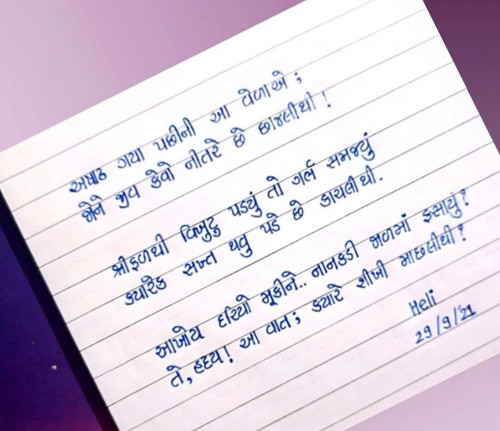 અષાઢ ગયા પછીની આ વેળાએ;
જોને જીવ કેવો નીતરે છે છાજલીથી!
શ્રીફળથી વિખુટુ પડ્યું તો ગર્ભ સમજ્યું
ક્યારેક સખ્ત થવુ પડે છે કાચલીથી.
આખોય દરિયો મૂકીને.. નાનકડી જાળમાં ફસાયું?
તે, હ્રદય! આ વાત; ક્યારે શીખી માછલીથી?
Heli
29/9/21